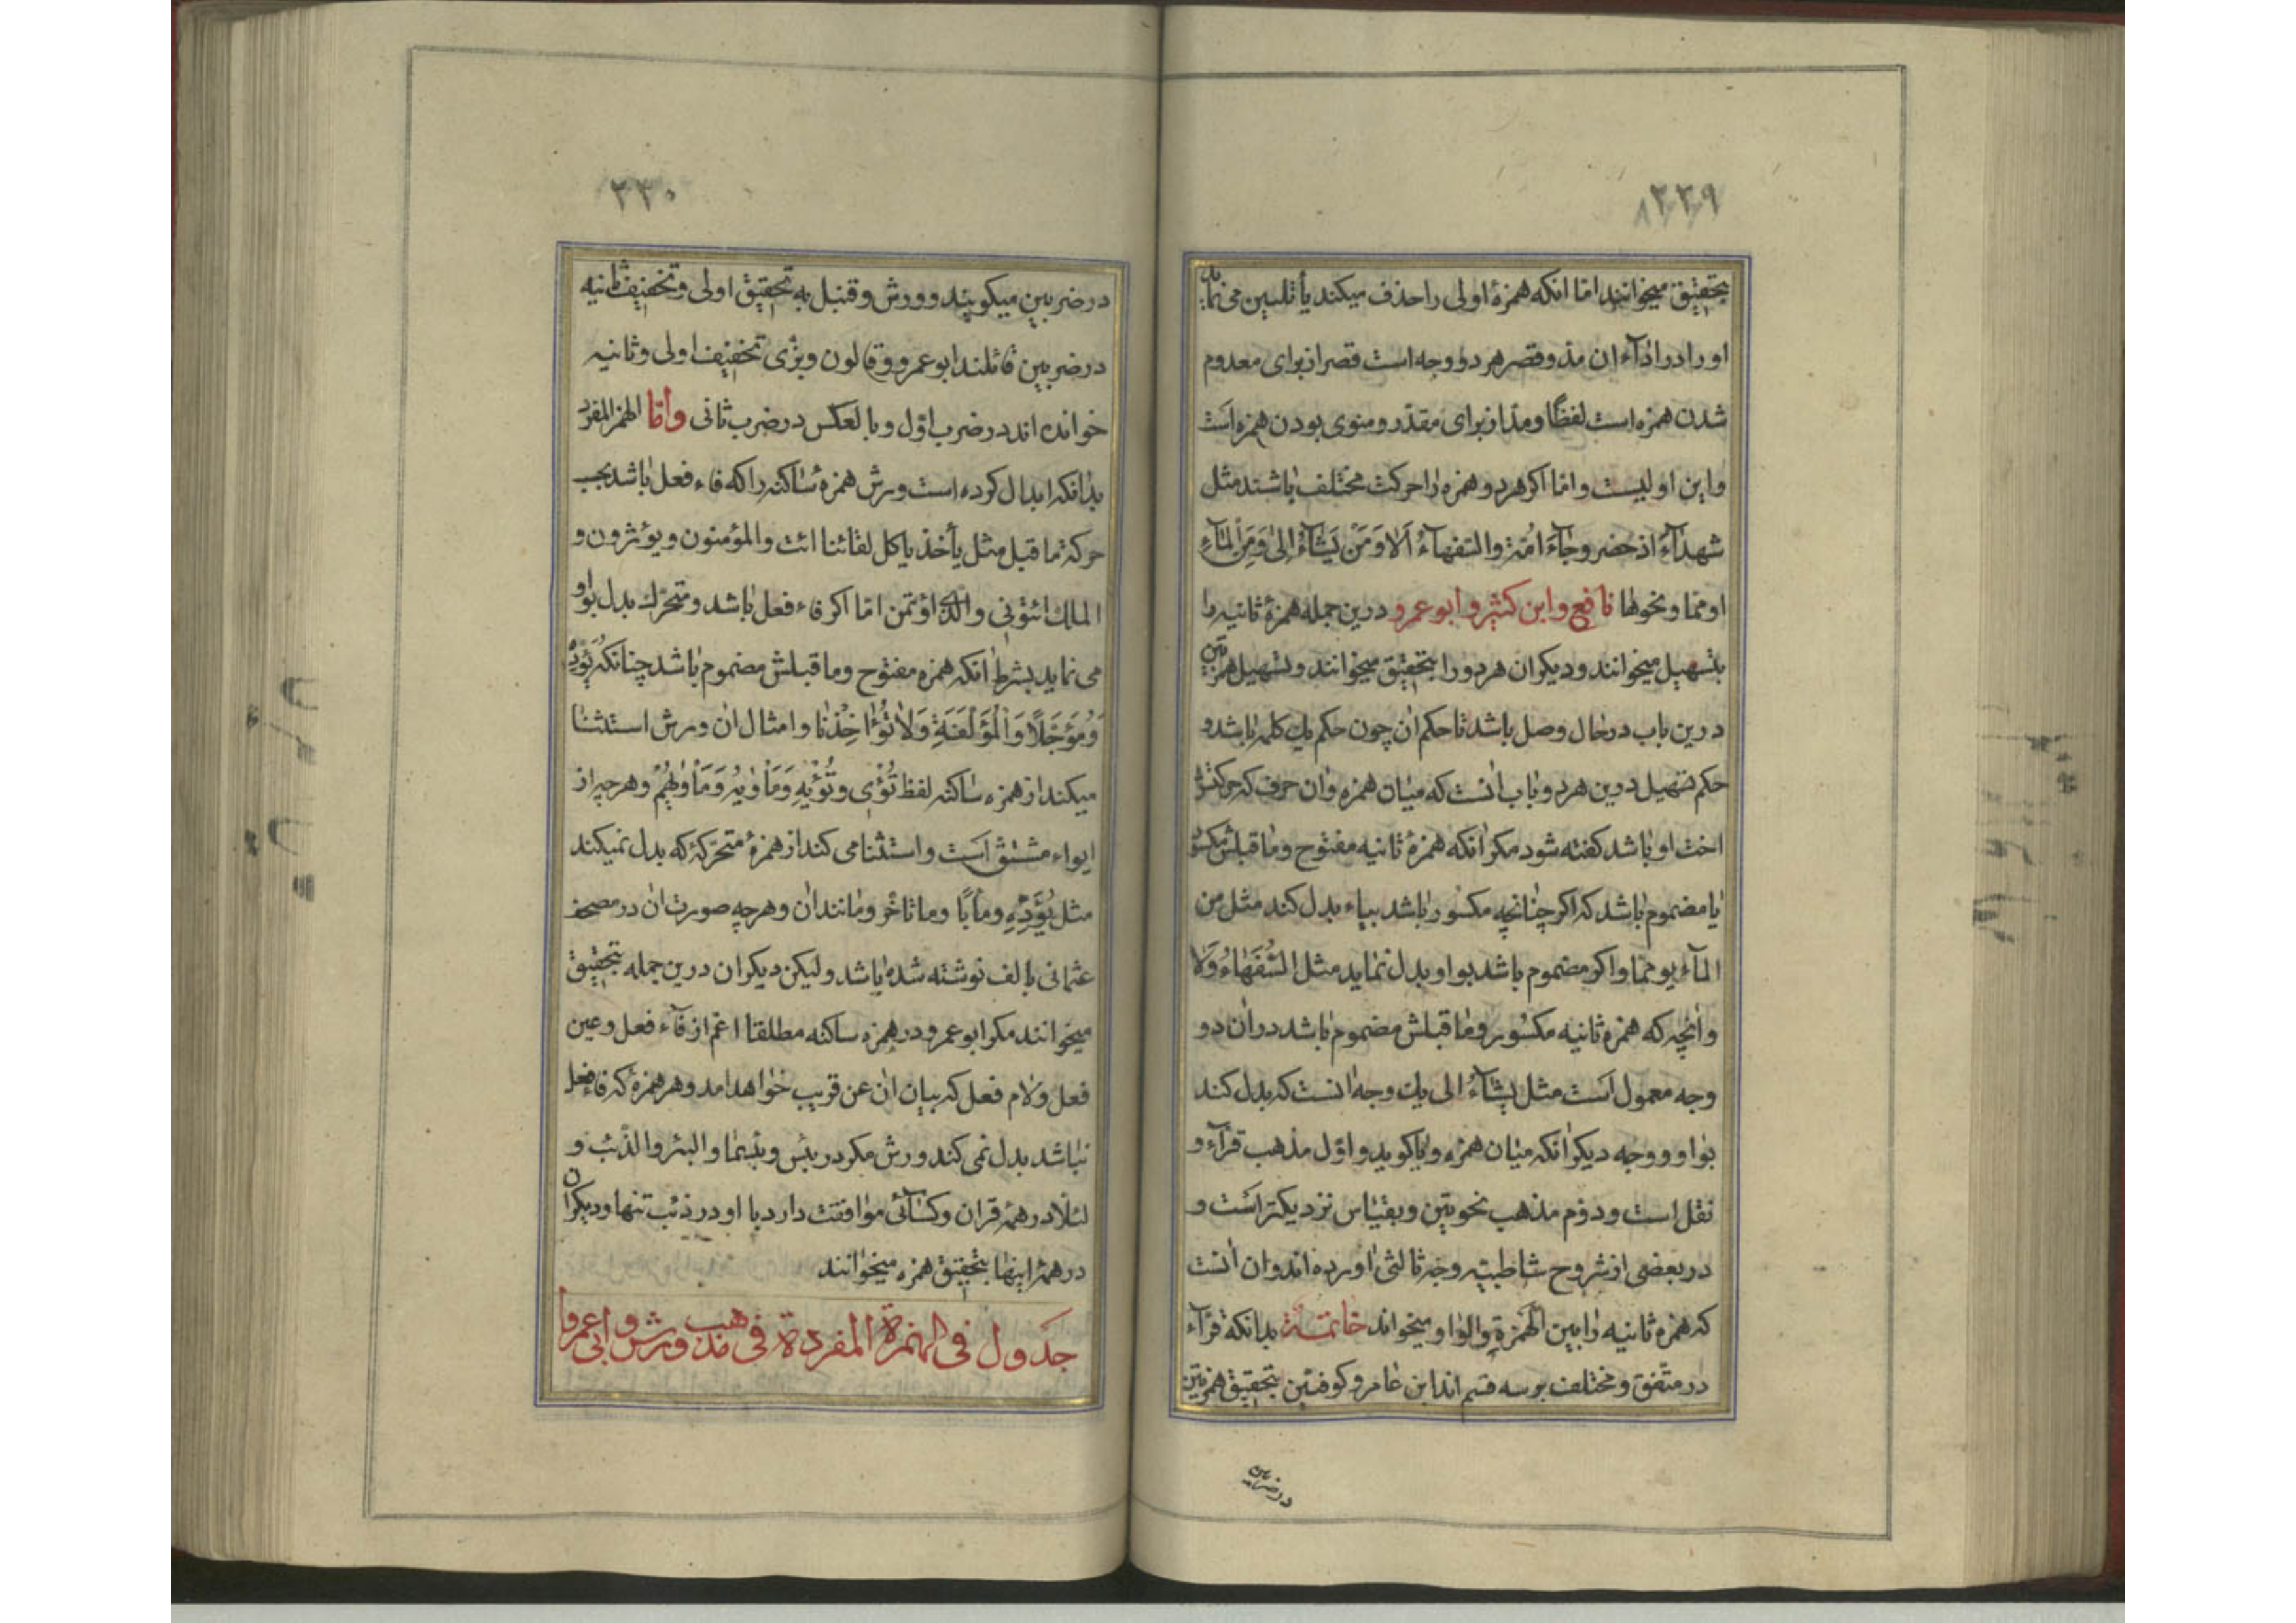 ۲۲۹
بتحقیق میخوانند امّا انکه همزهٔ اولی را حذف میکند یا تلیین می نماید
او را در اداء ان مدّ و قصر هر دو وجه است قصر از برای معدوم
شدن همزه است لفظًا و مدّ از برای مقدّر و منوی بودن همزه است
و این اولیست و امّا اکر هر دو همزه را حرکت مختلف باشند مثل
شهدآءَ اذ حضر و جآءَ امّة و السّفهآءُ اَلا وَمَن یَشآءُ الیٰ وَمِنَ المآءِ
او ممّا و نحوها نافع و ابن کثیر و ابو عمرو درین جمله همزهٔ ثانیه را
بتسهیل میخوانند و دیکران هر دو را بتحقیق میخوانند و تسهیل همزتین
درین باب در حال وصل باشد تا حکم ان چون حکم یك کلمه باشد و
حکم تسهیل درین هر دو باب انست که میان همزه و ان حرف که حرکتش
اخت او باشد کفته شود مکر انکه همزهٔ ثانیه مفتوح و ما قبلش مکسور
یا مضموم باشد که اکر چنانچه مکسور باشد بیاء بدل کند مثل من
المآء یو ممّا و اکر مضموم باشد بواو بدل نماید مثل السُّفَهاءُ وَلا
و انچه که همزه ثانیه مکسور و ما قبلش مضموم باشد در ان دو
وجه معمول است مثل یشآءُ الی یك وجه انست که بدل کند
بواو و وجه دیکر انکه میان همزه و یا کوید و اوّل مذهب قرّآء و
نقل است و دوّم مذهب نحویّین و بقیاس نزدیکتر است و
در بعضی از شروح شاطبیّه وجه ثالثی اورده اند و ان انست
که همزه ثانیه را بین الهمزة والواو میخواند خاتمة بدانکه قرّآء
در متّفق و مختلف بر سه قسم اند ابن عامر و کوفیّین بتحقیق همزتین
در ضربین
۲۳۰
در ضربین میکویند و ورش و قنبل به تحقیق اولی و تخفیف ثانیه
در ضربین قائلند ابو عمرو و قالون و بزّی تخفیف اولی و ثانیه
خوانده اند در ضرب اوّل و بالعکس در ضرب ثانی وأمّا الهمز المفرد
بدانکه ابدال کرده است ورش همزهٔ ساکنه را که فاء فعل باشد بحسب
حرکة ما قبل مثل یأخذ یاکل لقائنا ائت والمؤمنون و یؤثرون و
الملك ائتونی و الّذی اؤتمن امّا اکر فاء فعل باشد و متحرّك بدل بواو
می نماید بشرط انکه همزه مفتوح و ما قبلش مضموم باشد چنانکه یُؤَدِّهْ
وَمُؤَجَّلًا وَالْمُؤَلَّفَةِ وَلا تُؤاخِذْنا و امثال ان ورش استثنا
میکند از همزه ساکنه لفظ تُؤْی و تُؤْیهِ وَمَأْویٰهُ وَمَأْوٰیهُمْ و هر چه از
ایواء مشتق است و استثنا می کند از همزهٔ متحرّکهٔ که بدل نمیکند
مثل یُؤَدِّهِ و مأبًا و ما تاخّر و مانند ان و هر چه صورت ان در مصحف
عثمانی بالف نوشته شده باشد ولیکن دیکران درین جمله بتحقیق
میخوانند مکر ابو عمرو در همزه ساکنه مطلقا اعمّ از فآء فعل و عین
فعل و لام فعل که بیان ان عن قریب خواهد امد و هر همزهٔ که فاء فعل
نباشد بدل نمی کند ورش مکر در بئس و بئسما و البئر و الذّئب و
لئلّا در همهٔ قران و کسآئی موافقت دارد با او در ذئب تنها و دیکران
در همهٔ اینها بتحقیق همزه میخوانند
جدول فی الهمزة المفردة فی مذهب ورش و ابی عمرو